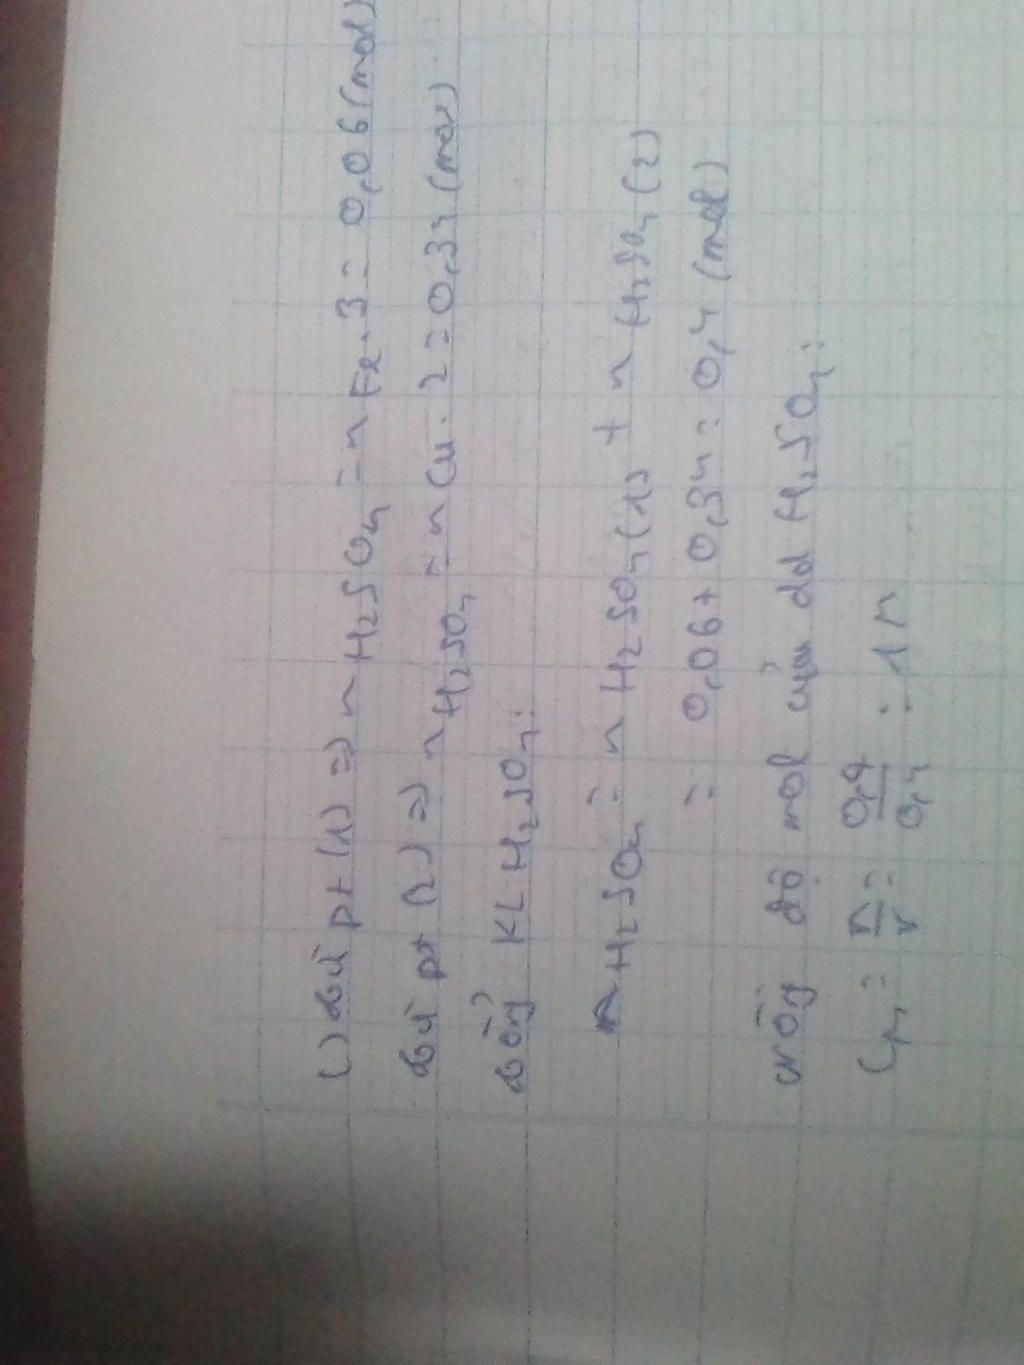 c) Từ pt (1) => n H2SO4 = n Fe . 3 = 0,06 (mol)
Từ pt (2) => n H2SO4 = n Cu . 2 = 0,34 (mol)
Tổng KL H2SO4:
n H2SO4 = n H2SO4 (1) + n H2SO4 (2)
= 0,06 + 0,34 = 0,4 (mol)
nồng độ mol của dd H2SO4:
CM = n/V = 0,4/0,4 = 1M